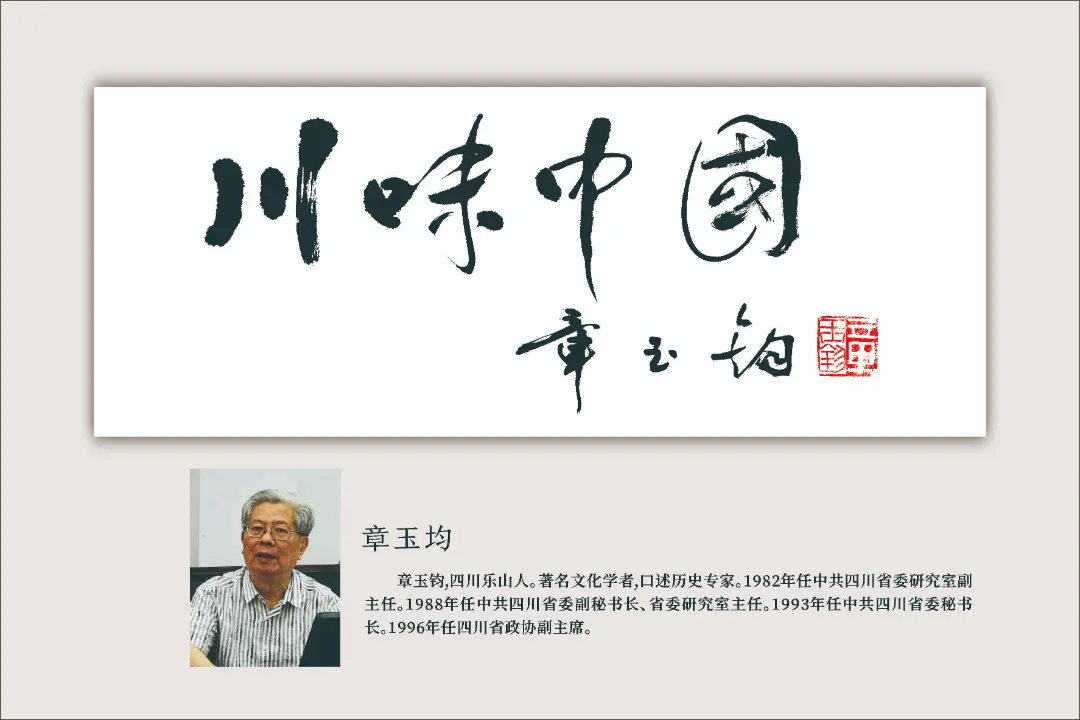 川味中國
章玉钧
章玉钧
章玉均
章玉钧,四川乐山人。著名文化学者,口述历史专家。1982年任中共四川省委研究室副
主任。1988年任中共四川省委副秘书长、省委研究室主任。1993年任中共四川省委秘书
长。1996年任四川省政协副主席。